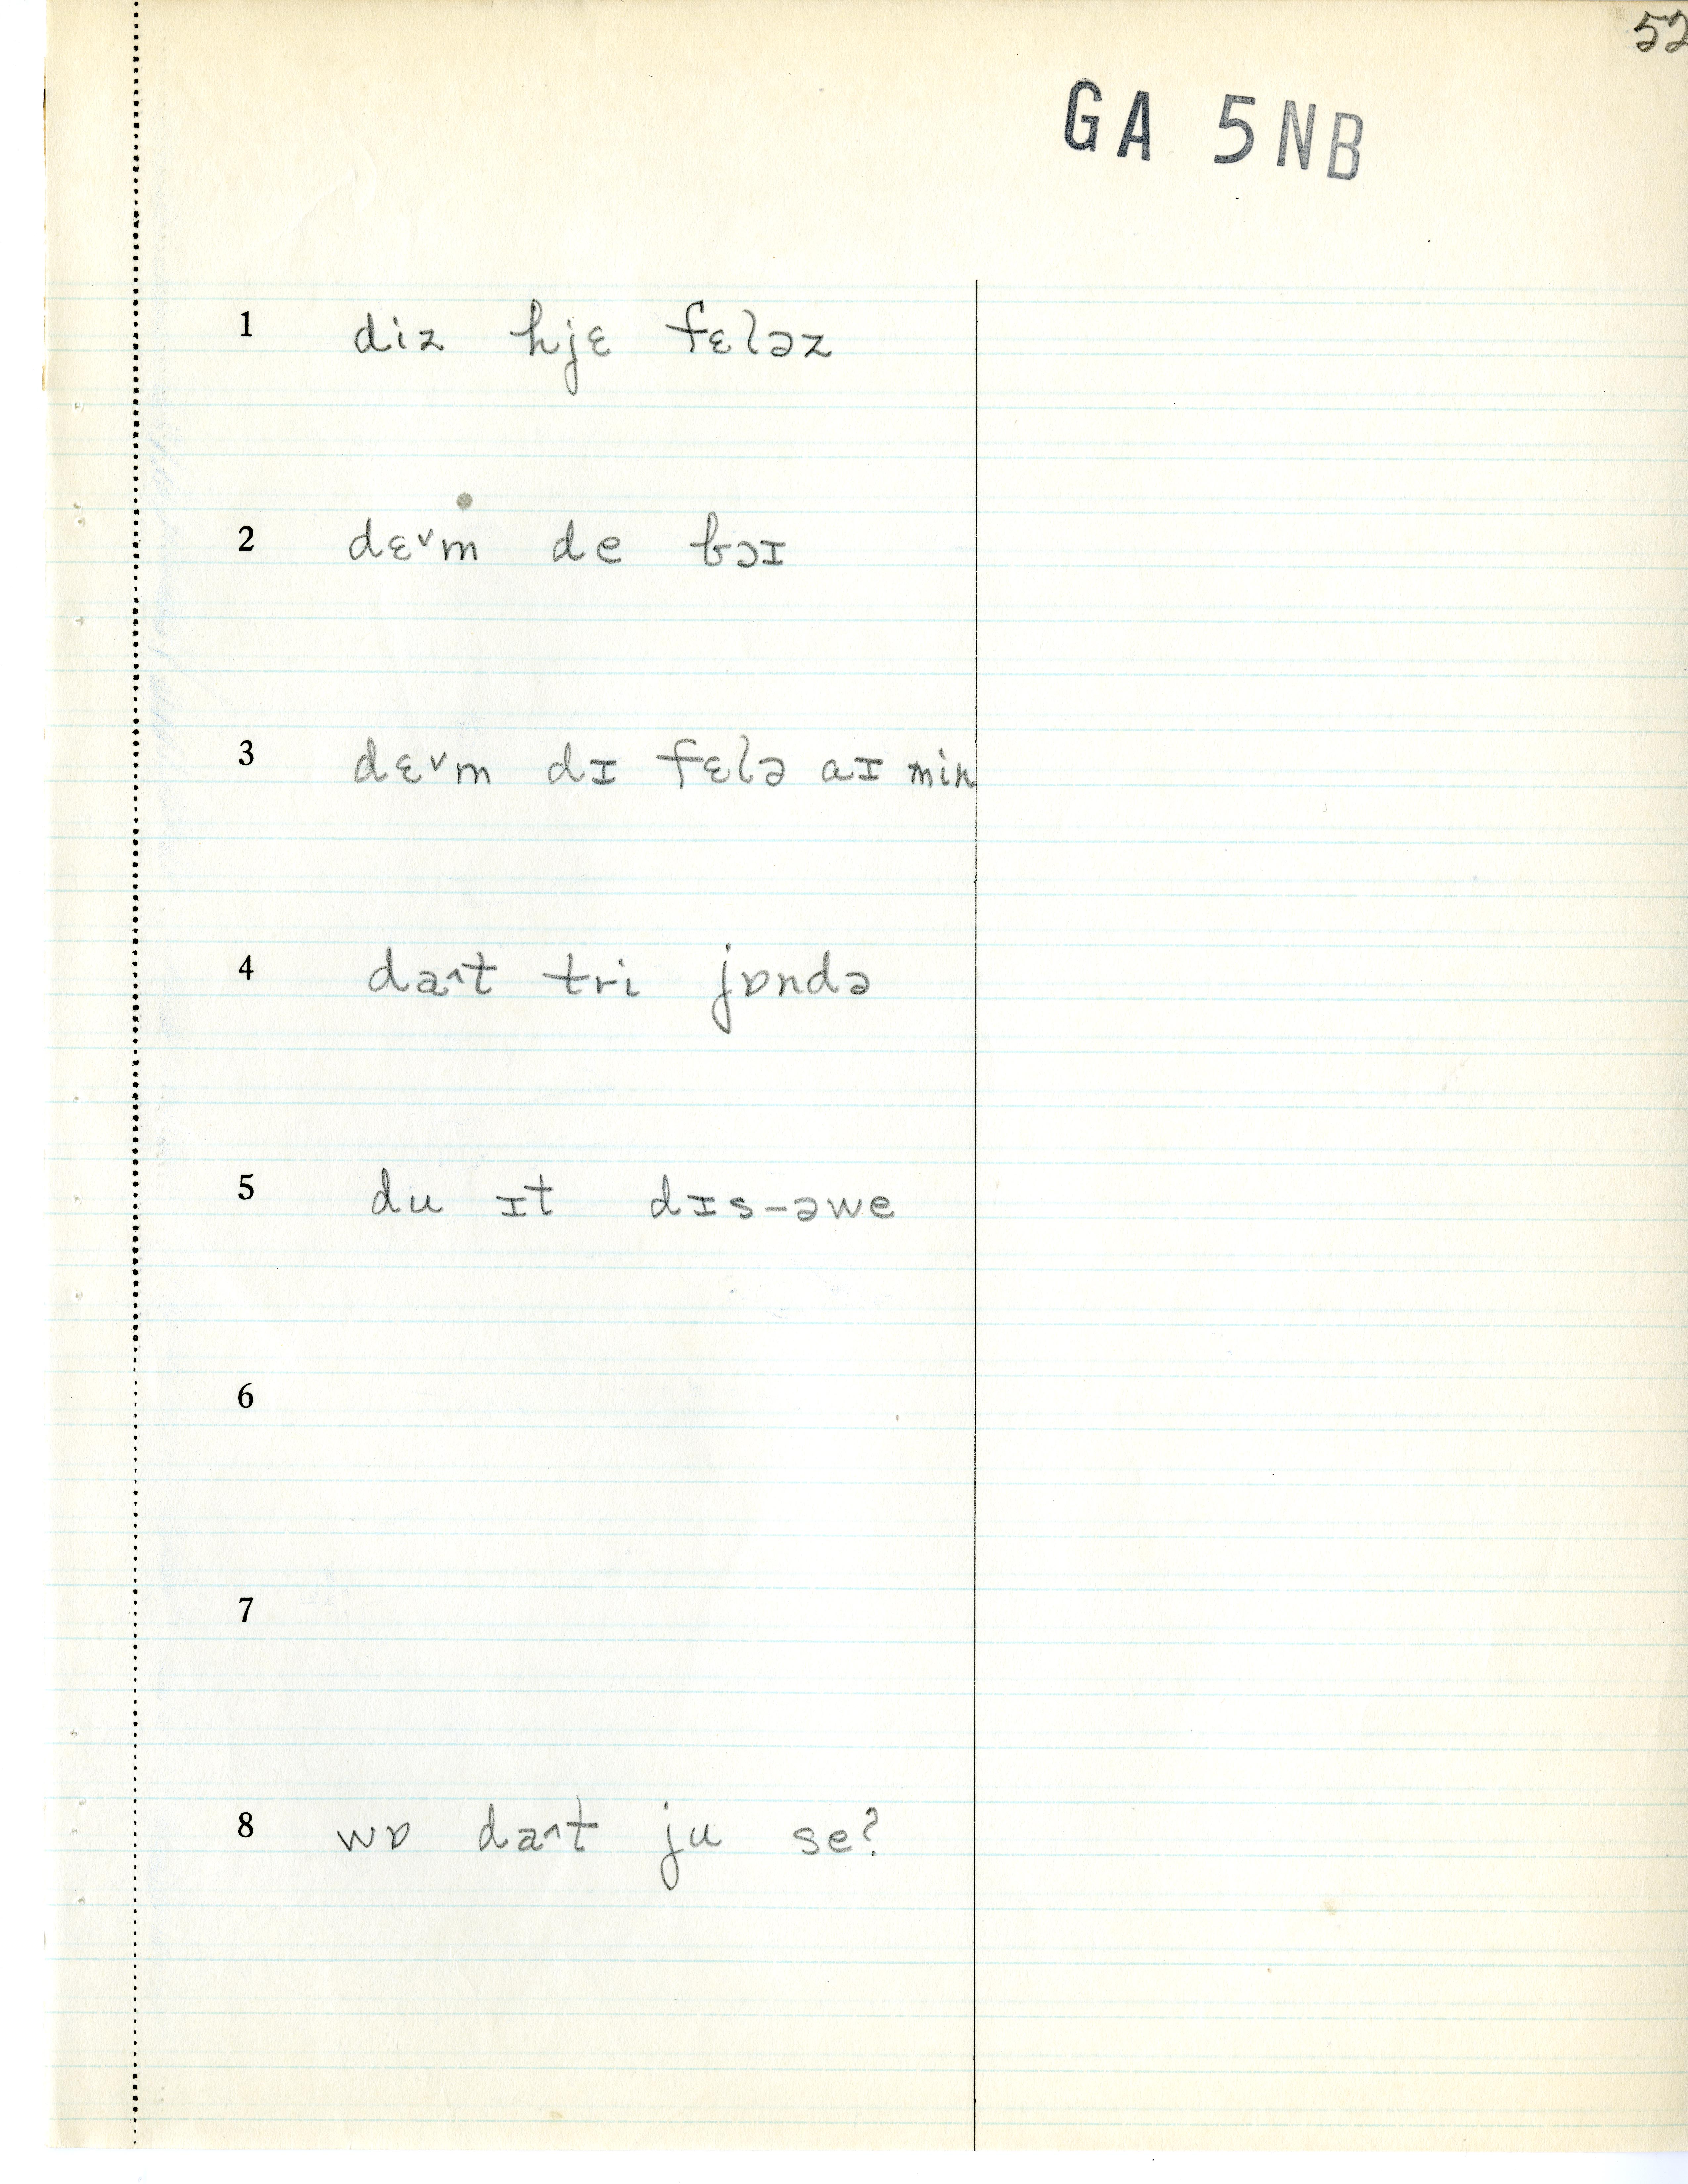 52
GA 5NB
1 diz hjɛ fɛləz
2 dɛ˅m de bɔɪ
3 dɛ˅m dɪ fɛlə aɪ min
4 da˄t tri jɒndə
5 du ɪt dɪs-əwe
6
7
8 wɒ da˄t ju se?